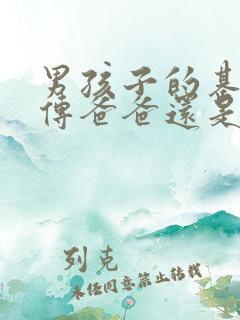 男孩子的基
傳爸爸還是
列克
未经同意禁止转载